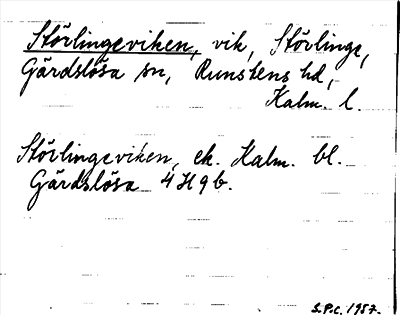 Störlingeviken, vik, Störlinge,
Gärdslösa sn, Runstens hd,
Kalm. l.
Störlingeviken, ek. Kalm. bl.
Gärdslösa 4H9b.
S.P.C. 1957.